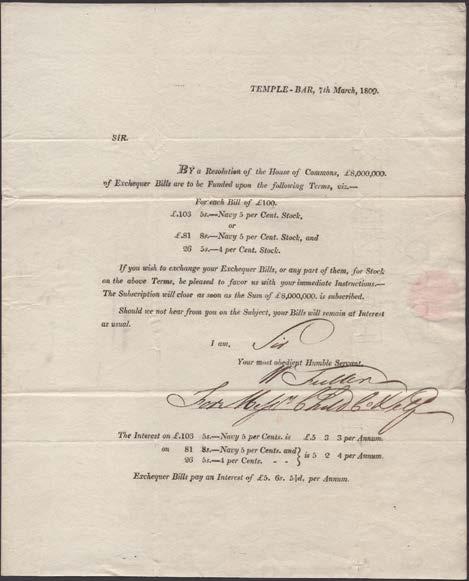 TEMPLE-BAR, 7th March, 1809.
SIR.
BY a Resolution of the House of Commons, £8,000,000.
of Exchequer Bills are to be Funded upon the following Terms, viz.—
For each Bill of £100.
£.103 5s.—Navy 5 per Cent. Stock.
or
£.81 8s.—Navy 5 per Cent. Stock, and
26 5s.—4 per Cent. Stock.
If you wish to exchange your Exchequer Bills, or any part of them, for Stock
on the above Terms, be pleased to favor us with your immediate Instructions.—
The Subscription will close as soon as the Sum of £8,000,000. is subscribed.
Should we not hear from you on the Subject, your Bills will remain at Interest
as usual.
I am, Sir
Your most obedient Humble Servant.
W Fuller
For Messrs. Child & Co
The Interest on £.103 5s.—Navy 5 per Cents. is £.5 3 3 per Annum.
on 81 8s.—Navy 5 per Cents. and } is 5 2 4 per Annum.
26 5s.—4 per Cents. - -
Exchequer Bills pay an Interest of £5. 6s. 5½d. per Annum.